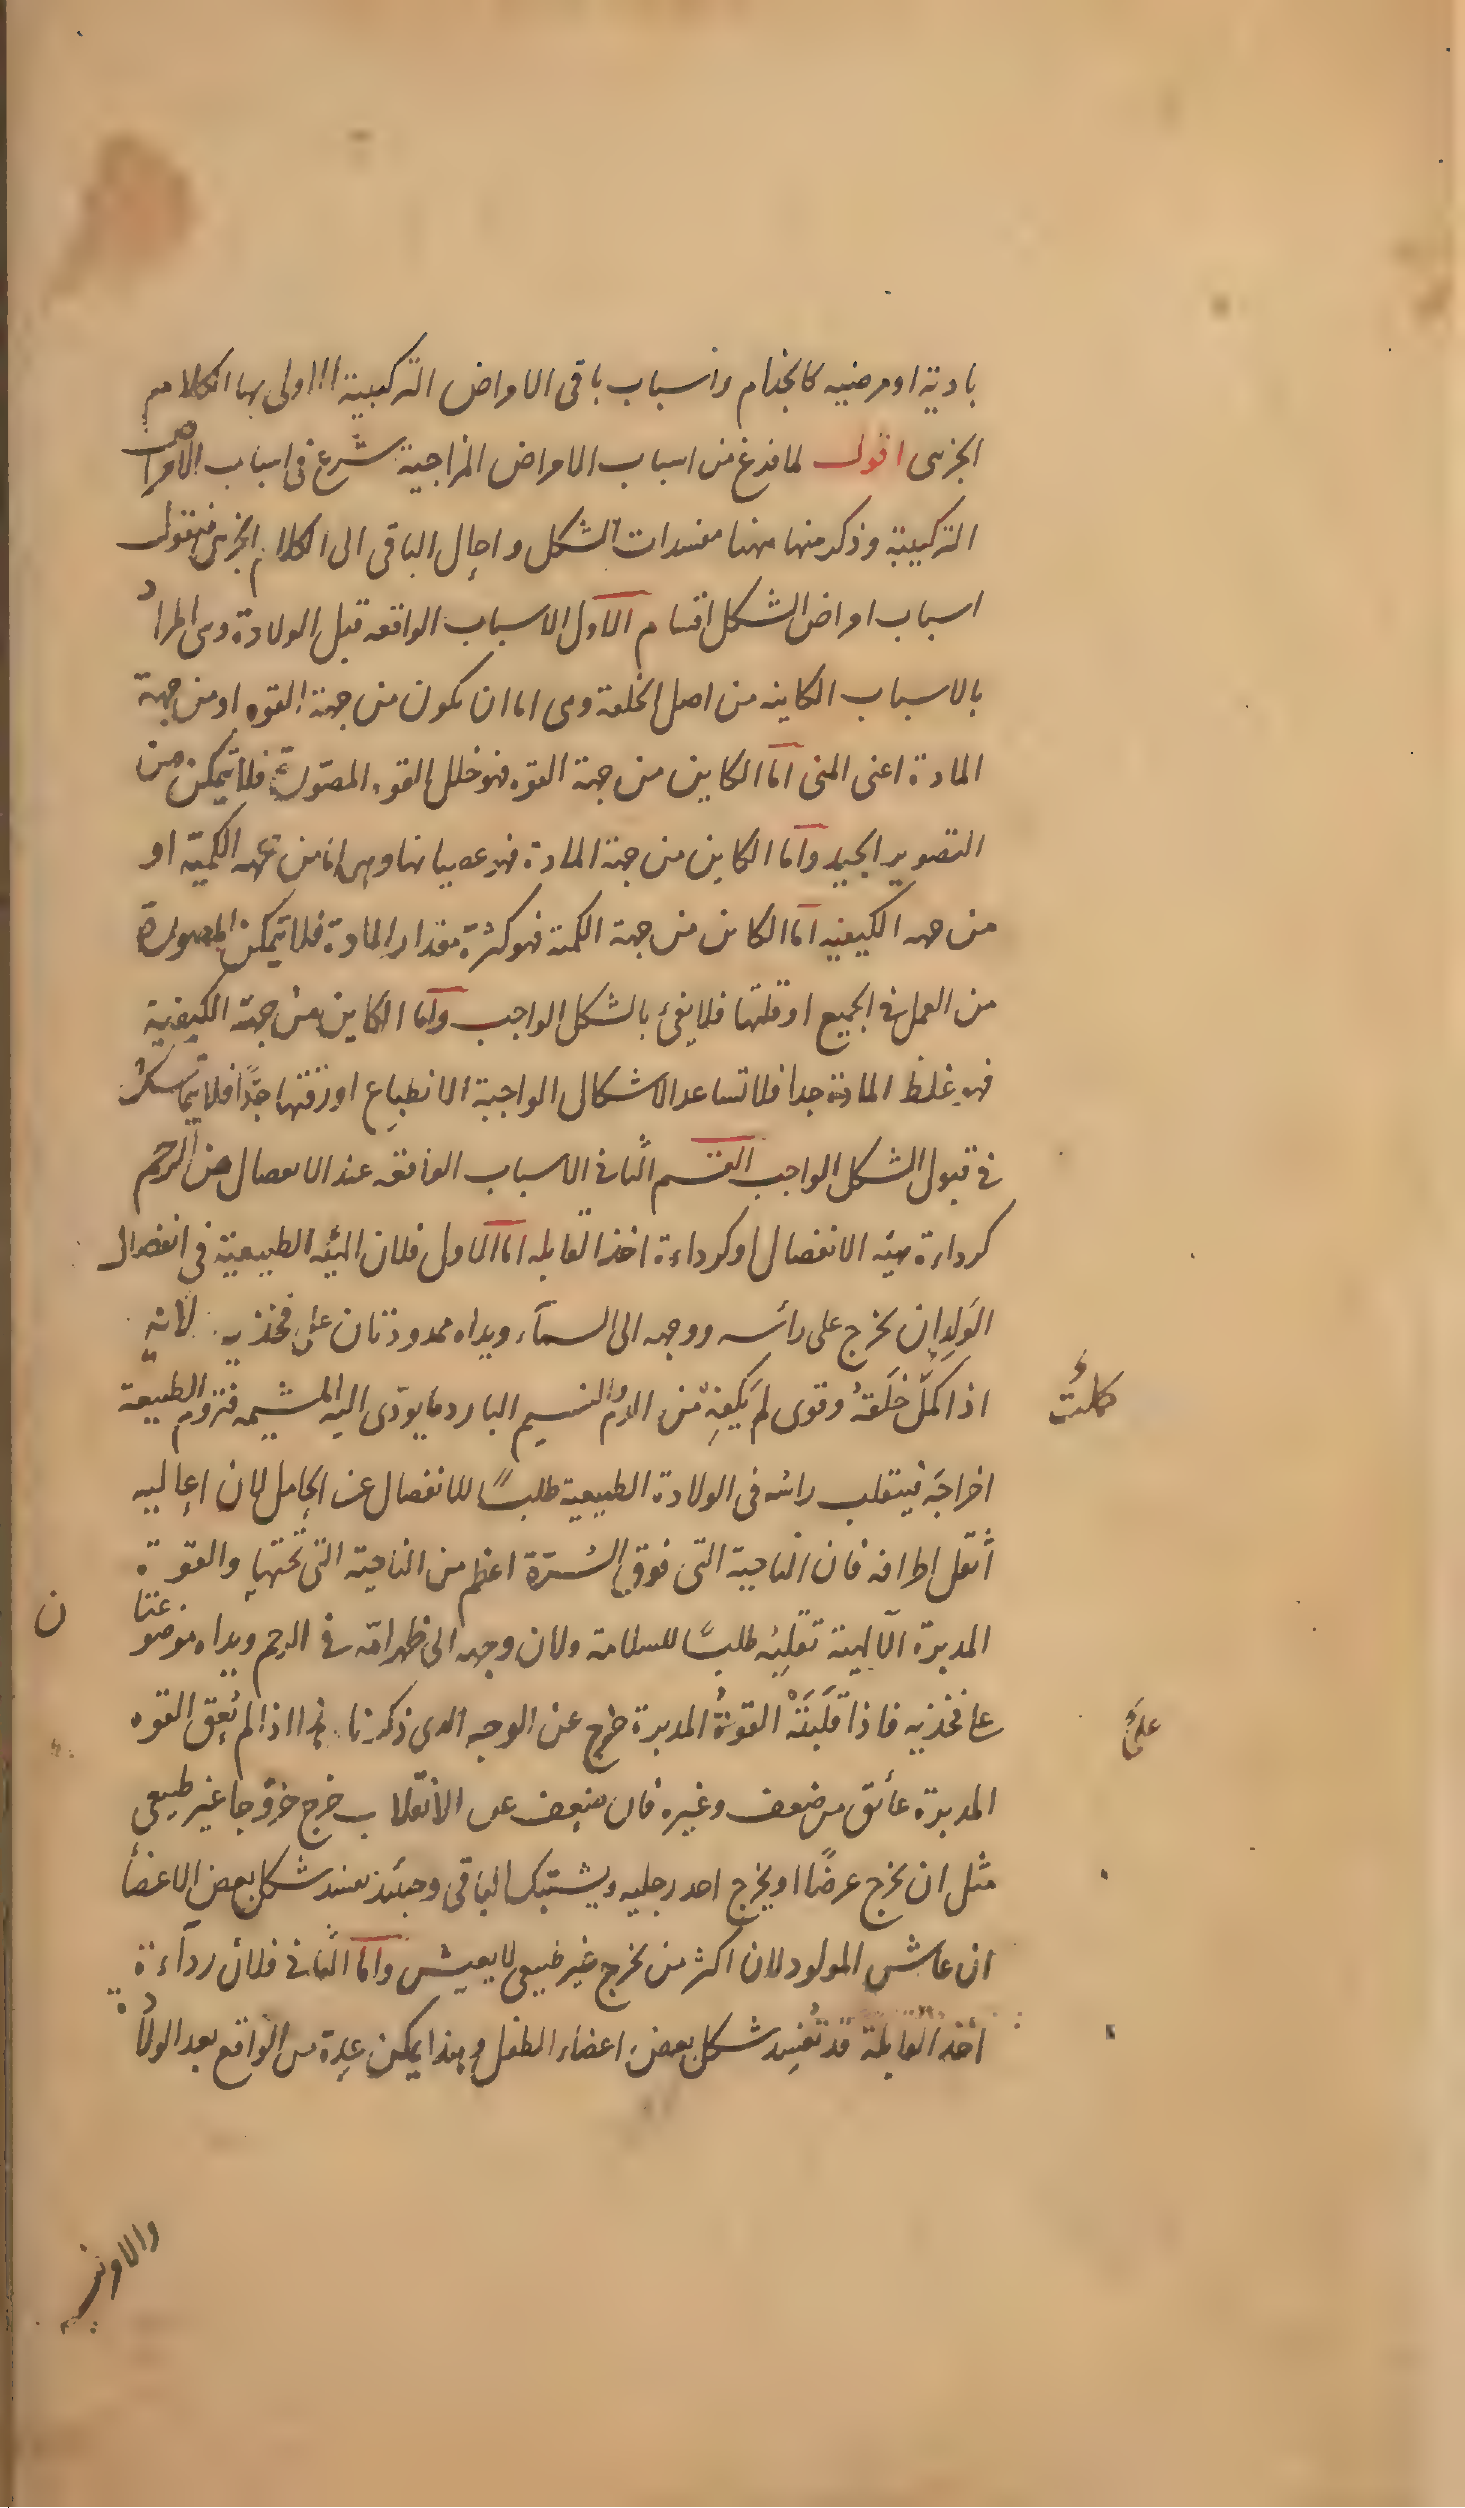 بادية او مرضيه كالجذام واسباب باقى الامراض التركيبية اولى بها الكلام
الجزئى اقول لما فرغ من اسباب الامراض المزاجية شرع فى اسباب الامراض
التركيبية وذكر منها ههنا مفسدات الشكل واحال الباقى الى الكلام الجزئى فنقول
اسباب امراض الشكل اقسام الاول الاسباب الواقعه قبل الولادة وهى المراد
بالاسباب الكاينه من اصل الخلقة وهى اما ان يكون من جهة القوه او من جهة
المادة اعنى المنى اما الكاين من جهة القوه فهو خلل القوه المصورة فلا يتمكن من
التصوير الجيد واما الكاين من جهة المادة فهو بيانها وهى اما من جهه الكمية او
من جهه الكيفيه اما الكاين من جهة الكمية فهو كثرة مقدار المادة فلا يتمكن المصورة
من العمل فى الجميع او قلتها فلا يفئ بالشكل الواجب واما الكاين من جهة الكيفية
فهو غلظ المادة جدا فلا تساعد الاشكال الواجبة الانطباع او رقتها جدًا فلا يتماسك
فى قبول الشكل الواجب القسم الثانى الاسباب الواقعه عند الانفصال من الرحم
كرداءة هيئه الانفصال او كرداءة اخذ القابله اما الاول فلان الهيئه الطبيعية فى انفصال
الولد ان يخرج على رأسه ووجهه الى السمآء ويداه ممدودتان على فخذيه لانه
اذا كمل خلقهُ وقوى لم يكفهِ من الدم والنسيم البارد ما يودّى اليه المشيمه فتروم الطبيعة
كملت
اخراجه فينقلب رأسه فى الولادة الطبيعية طلبًا للانفصال عن الحامل لان اعاليه
أثقل اطرافه فان الناحية التى فوق السُرّة اعظم من الناحية التى تحتها والقوة
المدبرة الآلهية تقلبه طلبًا للسلامة ولان وجهه الى ظهر امّه فى الرحم ويداه موضوعتا
ن
على فخذيه فاذا قَلَبَتْهُ القوةُ المدبرة خرج عن الوجه الذى ذكرنا هذا اذا لم يُعِق القوه
على
المدبرة عائق من ضعف وغيره فان ضعف عن الانقلاب خرج خروجا غير طبيعى
مثل ان يخرج عرضًا او يخرج احد رجليه ويشتبك الباقى وحينئذ يفسد شكل بعض الاعضأ
ان عاش المولود لان اكثر من يخرج غير طبيعى لا يعيش واما الثانى فلان ردآءة
اخذ القابلة قد تُفسِد شكل بعض اعضاء الطفل وهذا يمكن عده من الواقع بعد الولادة